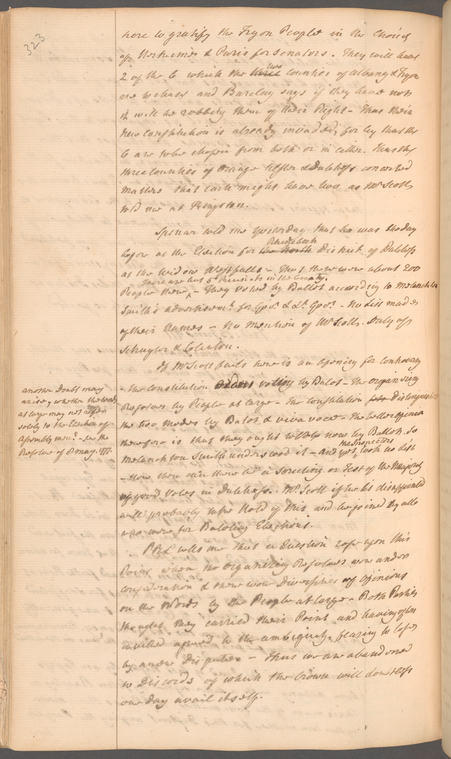 323
here to gratify the Tryon People in the Choice
of Herkimer & Paris for Senators. They will have
2 of the 6 which the two Counties of Albany & Tryon
are to elect and Barclay says if they have not
it will be robbing them of their Right – Thus their
new Constitution is already invaded, for by that the
6 are to be chosen from both or in either. And the
three Counties of Orange Ulster & Dutchess consorted
matters that each might have two, as Mr Scott
told me at Kingston.
Spencer told me yesterday that he was the day
before at the Election for Rhinebeck District of Dutchess
at the Widow Westfalls – That there were about 200
there are but 6 Precincts in the County
People there – They voted by Ballot according to Melancton
Smith's advertisemt. for Govr. & Lt. Govr. – No List made
of their Names – No mention of Mr Scott. Only of
Schuyler & Colerton.
If Mr Scott fails here is an opening for Controversy
– The Constitution voting by Balot – The Organizing
Resolves by People at large – The Constitution distinguishes
the two modes by Balot & viva voce – The better opinion
therefore is that they ought to vote now by Ballot. So
Melancton Smith understood it – And yet the Inspectors took no list
– How then can there be a Scrutiny or Test of the Majority
of good Votes in Dutchess. Mr Scott if he be disappointed
will probably take Hold of this, and be joined by all
who were for Baloting Elections.
another Doubt may
arise, whether the words
at large may not refer
solely to the Election of
Assembly men? – see the
Resolve of 8 may 177
PRL tells me that a Question rose upon this
Point when the organizing Resolves were under
consideration & there were diversities of opinions
on the Words by the People at large – Both Parties
thought they carried their Point and having often
agreed to the ambiguity fearing to lose
by another Dispute – Thus we are abandoned
to Discords of which the Crown will doubtless
one day avail itself.